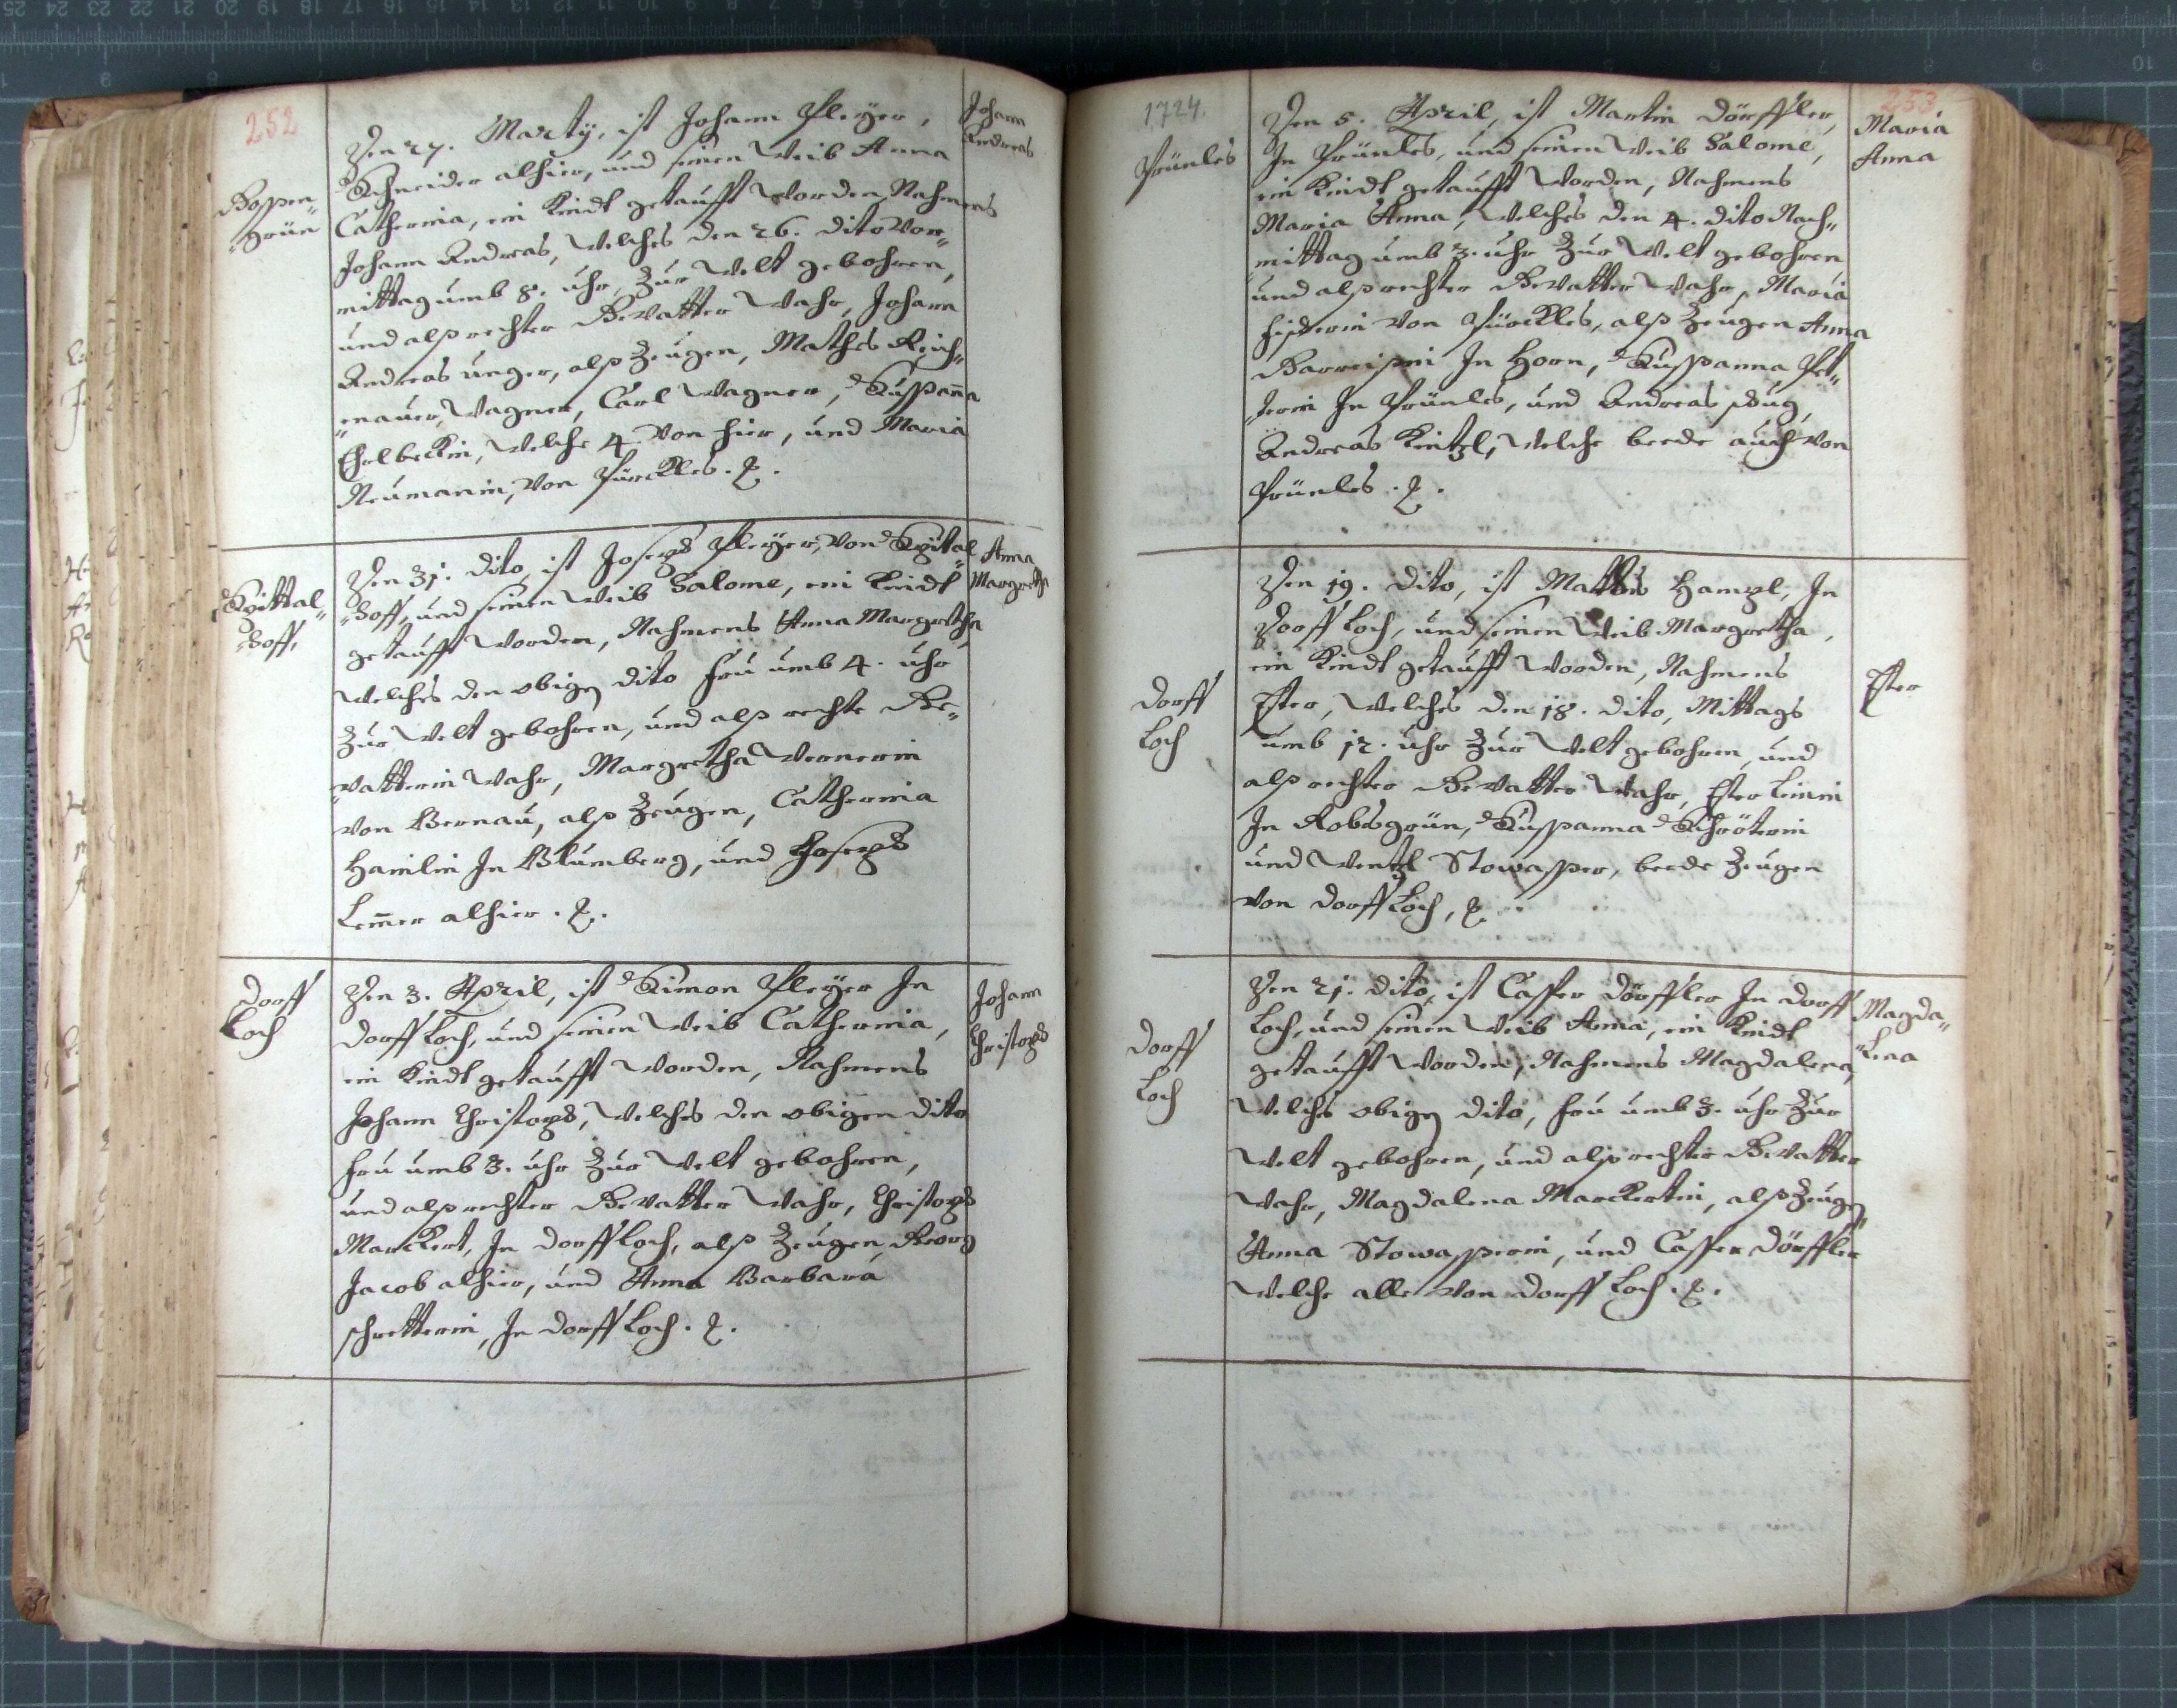 252
Boxen„
„grün
Den 27. Marty, ist Johann Pleÿer,
Schneider alhier, und seinen Weib Anna
Catherina, ein Kindt getaufft worden Nahmens
Johann Andreas, welches den 26. dito Vor„
mittag umb 8. uhr, Zur Welt gebohren,
und alß rechter Gevatter wahr, Johann
Andreas Unger, alß Zeugen, Mathes Reich„
„enauer, Wagner, Carl Wagner, Sussanna
welche 4. von hier, und Maria
Neumanin, von Pürckles. &.
Johann
Andreas
Spittal„
„hoff,
Den 31. dito, ist Joseph Pleÿer, von Spital
„hoff, und seinen Weib Salome, ein Kindt
getaufft worden, Nahmens Anna Margretha,
welches den obigen dito fru umb 4. uhr
Zur Welt gebohren, und alß rechte Ge„
„vatterin wahr, Margretha Wernerin
von Bernau, alß Zeugen, Catherina
Hainlin In Blumberg, und Joseph
Lem̄er alhier. &.
Anna
Margretha
Dorff
Loch
Den 3. April, ist Simon Pleÿer In
Dorff Loch, und seinen Weib Catherina,
ein Kindt getaufft worden, Nahmens
Johann Christoph, welches den obigen dito
fru umb 3. uhr Zur Welt gebohren,
und alß rechter Gevatter wahr, Christoph
Marckert, In Dorff Loch, alß Zeugen, Georg
Jacob alhier, und Anna Barbara
schretterin, In Dorff Loch. &.
Johann
Christoph
1724.
253
Prünles
Den 5. April, ist Martin Dörffler,
In Prünles, und seinen Weib Salome,
ein Kindt getaufft worden, Nahmens
Maria Anna, welches den 4. dito Nach„
mittag umb 3. uhr Zur Welt gebohren
und alß rechter Gevatter wahr, Maria
von Pürckles, alß Zeugen Anna
In Horn, Sussanna Pel„
„lerin In Prünles, und Andreas
Andreas Kintzl, welche beede auch von
Prünles. &.
Maria
Anna
Dorff
Loch
Den 19. dito, ist Mathes Hampl, In
Dorff Loch, und seinen Weib Margretha,
ein Kindt getaufft worden, Nahmens
Ester, welches den 18. dito, Mittags
umb 12. uhr Zur Welt gebohren, und
alß rechter Gevatter wahr, Ester
In Robsgrün, Sussanna Schröterin
und Wentzl Stowasser, beede Zeugen
von Dorff Loch, &.
Ester
Dorff
Loch
Den 21. dito, ist Casper Dörffler In Dorff
Loch, und seinen Weib Anna, ein Kindt
getaufft worden, Nahmens Magdalena,
welches obigen dito, fru umb 3. uhr Zur
Welt gebohren, und alß rechter Gevatter
wahr, Magdalena Marckertin, alß Zeugen
Anna Stowasserin, und Casper Dörffler
welche alle von Dorff Loch. &.
Magda„
„lena